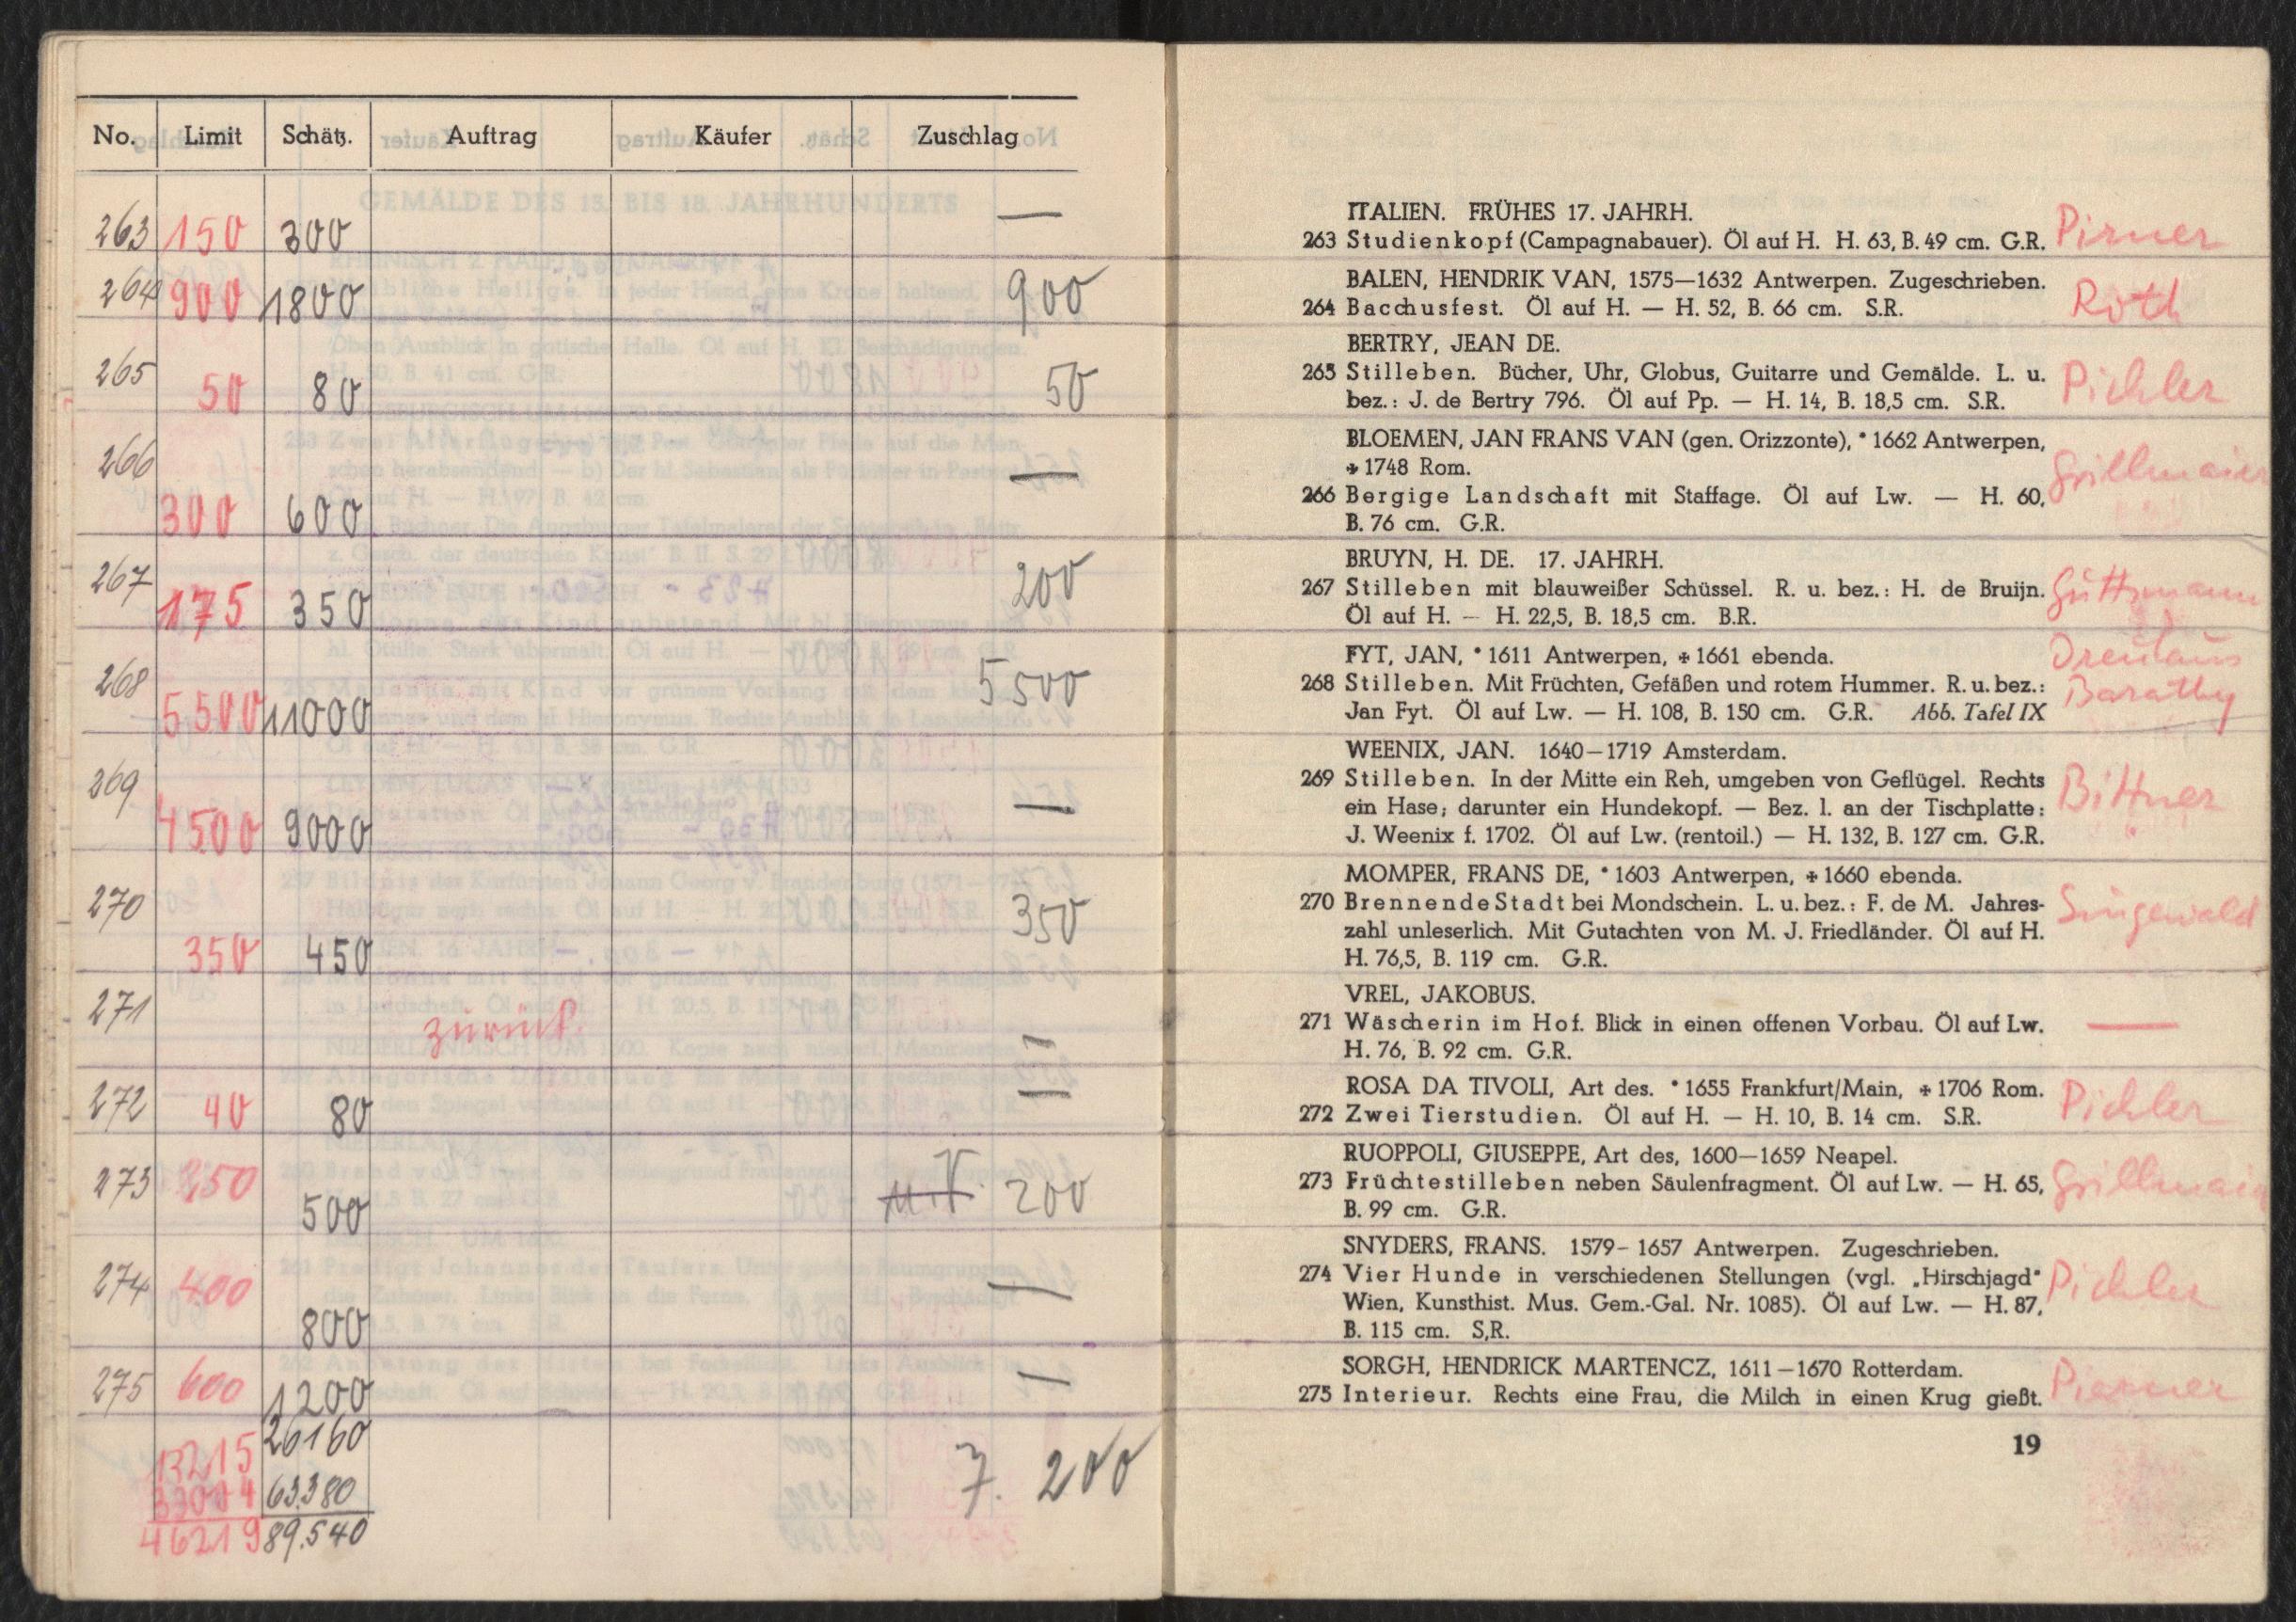 No. Limit Schätz. Auftrag Käufer Zuschlag
263 150 300 —
264 900 1800 900
265 50 80 50
266 300 600 —
267 175 350 200
268 5500 11000 5500
269 4500 9000 —
270 350 450 350
271 zurück. —
272 40 80 —
273 250 500 200
274 400 800 —
275 600 1200 —
13215 26160 7.200
33004 63.380
46219 89.540
ITALIEN. FRÜHES 17. JAHRH.
263 Studienkopf (Campagnabauer). Öl auf H. H. 63, B. 49 cm. G.R. Pirner
BALEN, HENDRIK VAN, 1575—1632 Antwerpen. Zugeschrieben.
264 Bacchusfest. Öl auf H. — H. 52, B. 66 cm. S.R. Roth
BERTRY, JEAN DE.
265 Stilleben. Bücher, Uhr, Globus, Guitarre und Gemälde. L. u.
bez.: J. de Bertry 796. Öl auf Pp. — H. 14, B. 18,5 cm. S.R. Pichler
BLOEMEN, JAN FRANS VAN (gen. Orizzonte), * 1662 Antwerpen,
✦ 1748 Rom.
266 Bergige Landschaft mit Staffage. Öl auf Lw. — H. 60, Grillmaier
B. 76 cm. G.R.
BRUYN, H. DE. 17. JAHRH.
267 Stilleben mit blauweißer Schüssel. R. u. bez.: H. de Bruijn. Guttmann
Öl auf H. — H. 22,5, B. 18,5 cm. B.R.
FYT, JAN, * 1611 Antwerpen, ✦ 1661 ebenda.
268 Stilleben. Mit Früchten, Gefäßen und rotem Hummer. R. u. bez.: Barathy
Jan Fyt. Öl auf Lw. — H. 108, B. 150 cm. G.R. Abb. Tafel IX
WEENIX, JAN. 1640–1719 Amsterdam.
269 Stilleben. In der Mitte ein Reh, umgeben von Geflügel. Rechts Bittner
ein Hase; darunter ein Hundekopf. — Bez. l. an der Tischplatte: "
J. Weenix f. 1702. Öl auf Lw. (rentoil.) — H. 132, B. 127 cm. G.R.
MOMPER, FRANS DE, * 1603 Antwerpen, ✦ 1660 ebenda.
270 Brennende Stadt bei Mondschein. L. u. bez.: F. de M. Jahres- Singewald
zahl unleserlich. Mit Gutachten von M. J. Friedländer. Öl auf H.
H. 76,5, B. 119 cm. G.R.
VREL, JAKOBUS.
271 Wäscherin im Hof. Blick in einen offenen Vorbau. Öl auf Lw. —
H. 76, B. 92 cm. G.R.
ROSA DA TIVOLI, Art des. * 1655 Frankfurt/Main, ✦ 1706 Rom.
272 Zwei Tierstudien. Öl auf H. — H. 10, B. 14 cm. S.R. Pichler
RUOPPOLI, GIUSEPPE, Art des, 1600—1659 Neapel.
273 Früchtestilleben neben Säulenfragment. Öl auf Lw. — H. 65, Grillmaier
B. 99 cm. G.R.
SNYDERS, FRANS. 1579–1657 Antwerpen. Zugeschrieben.
274 Vier Hunde in verschiedenen Stellungen (vgl. „Hirschjagd" Pichler
Wien, Kunsthist. Mus. Gem.-Gal. Nr. 1085). Öl auf Lw. — H. 87,
B. 115 cm. S,R.
SORGH, HENDRICK MARTENCZ, 1611–1670 Rotterdam.
275 Interieur. Rechts eine Frau, die Milch in einen Krug gießt.
19